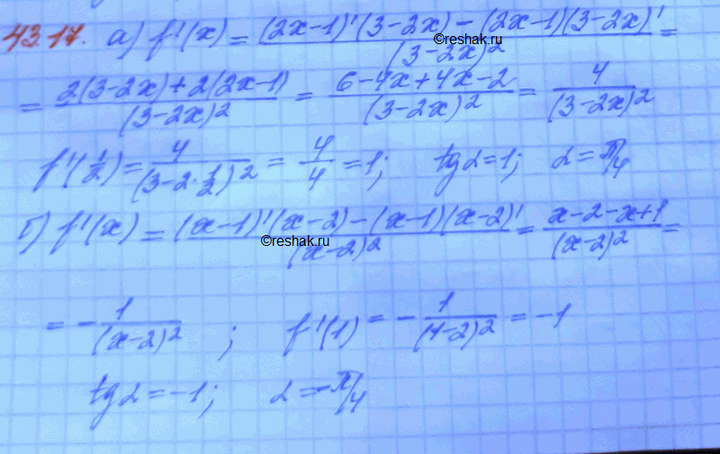 43.17. а) f'(x) = (2x-1)'(3-2x) - (2x-1)(3-2x)' / (3-2x)² =
©reshak.ru
= 2(3-2x)+2(2x-1) / (3-2x)² = 6-4x+4x-2 / (3-2x)² = 4 / (3-2x)²
f'(1/2) = 4 / (3-2·1/2)² = 4/4 = 1; tg α = 1; α = π/4
б) f'(x) = (x-1)'(x-2) - (x-1)(x-2)' / (x-2)² = x-2-x+1 / (x-2)² =
©reshak.ru
= - 1 / (x-2)² ; f'(1) = - 1 / (1-2)² = -1
tg α = -1; α = -π/4